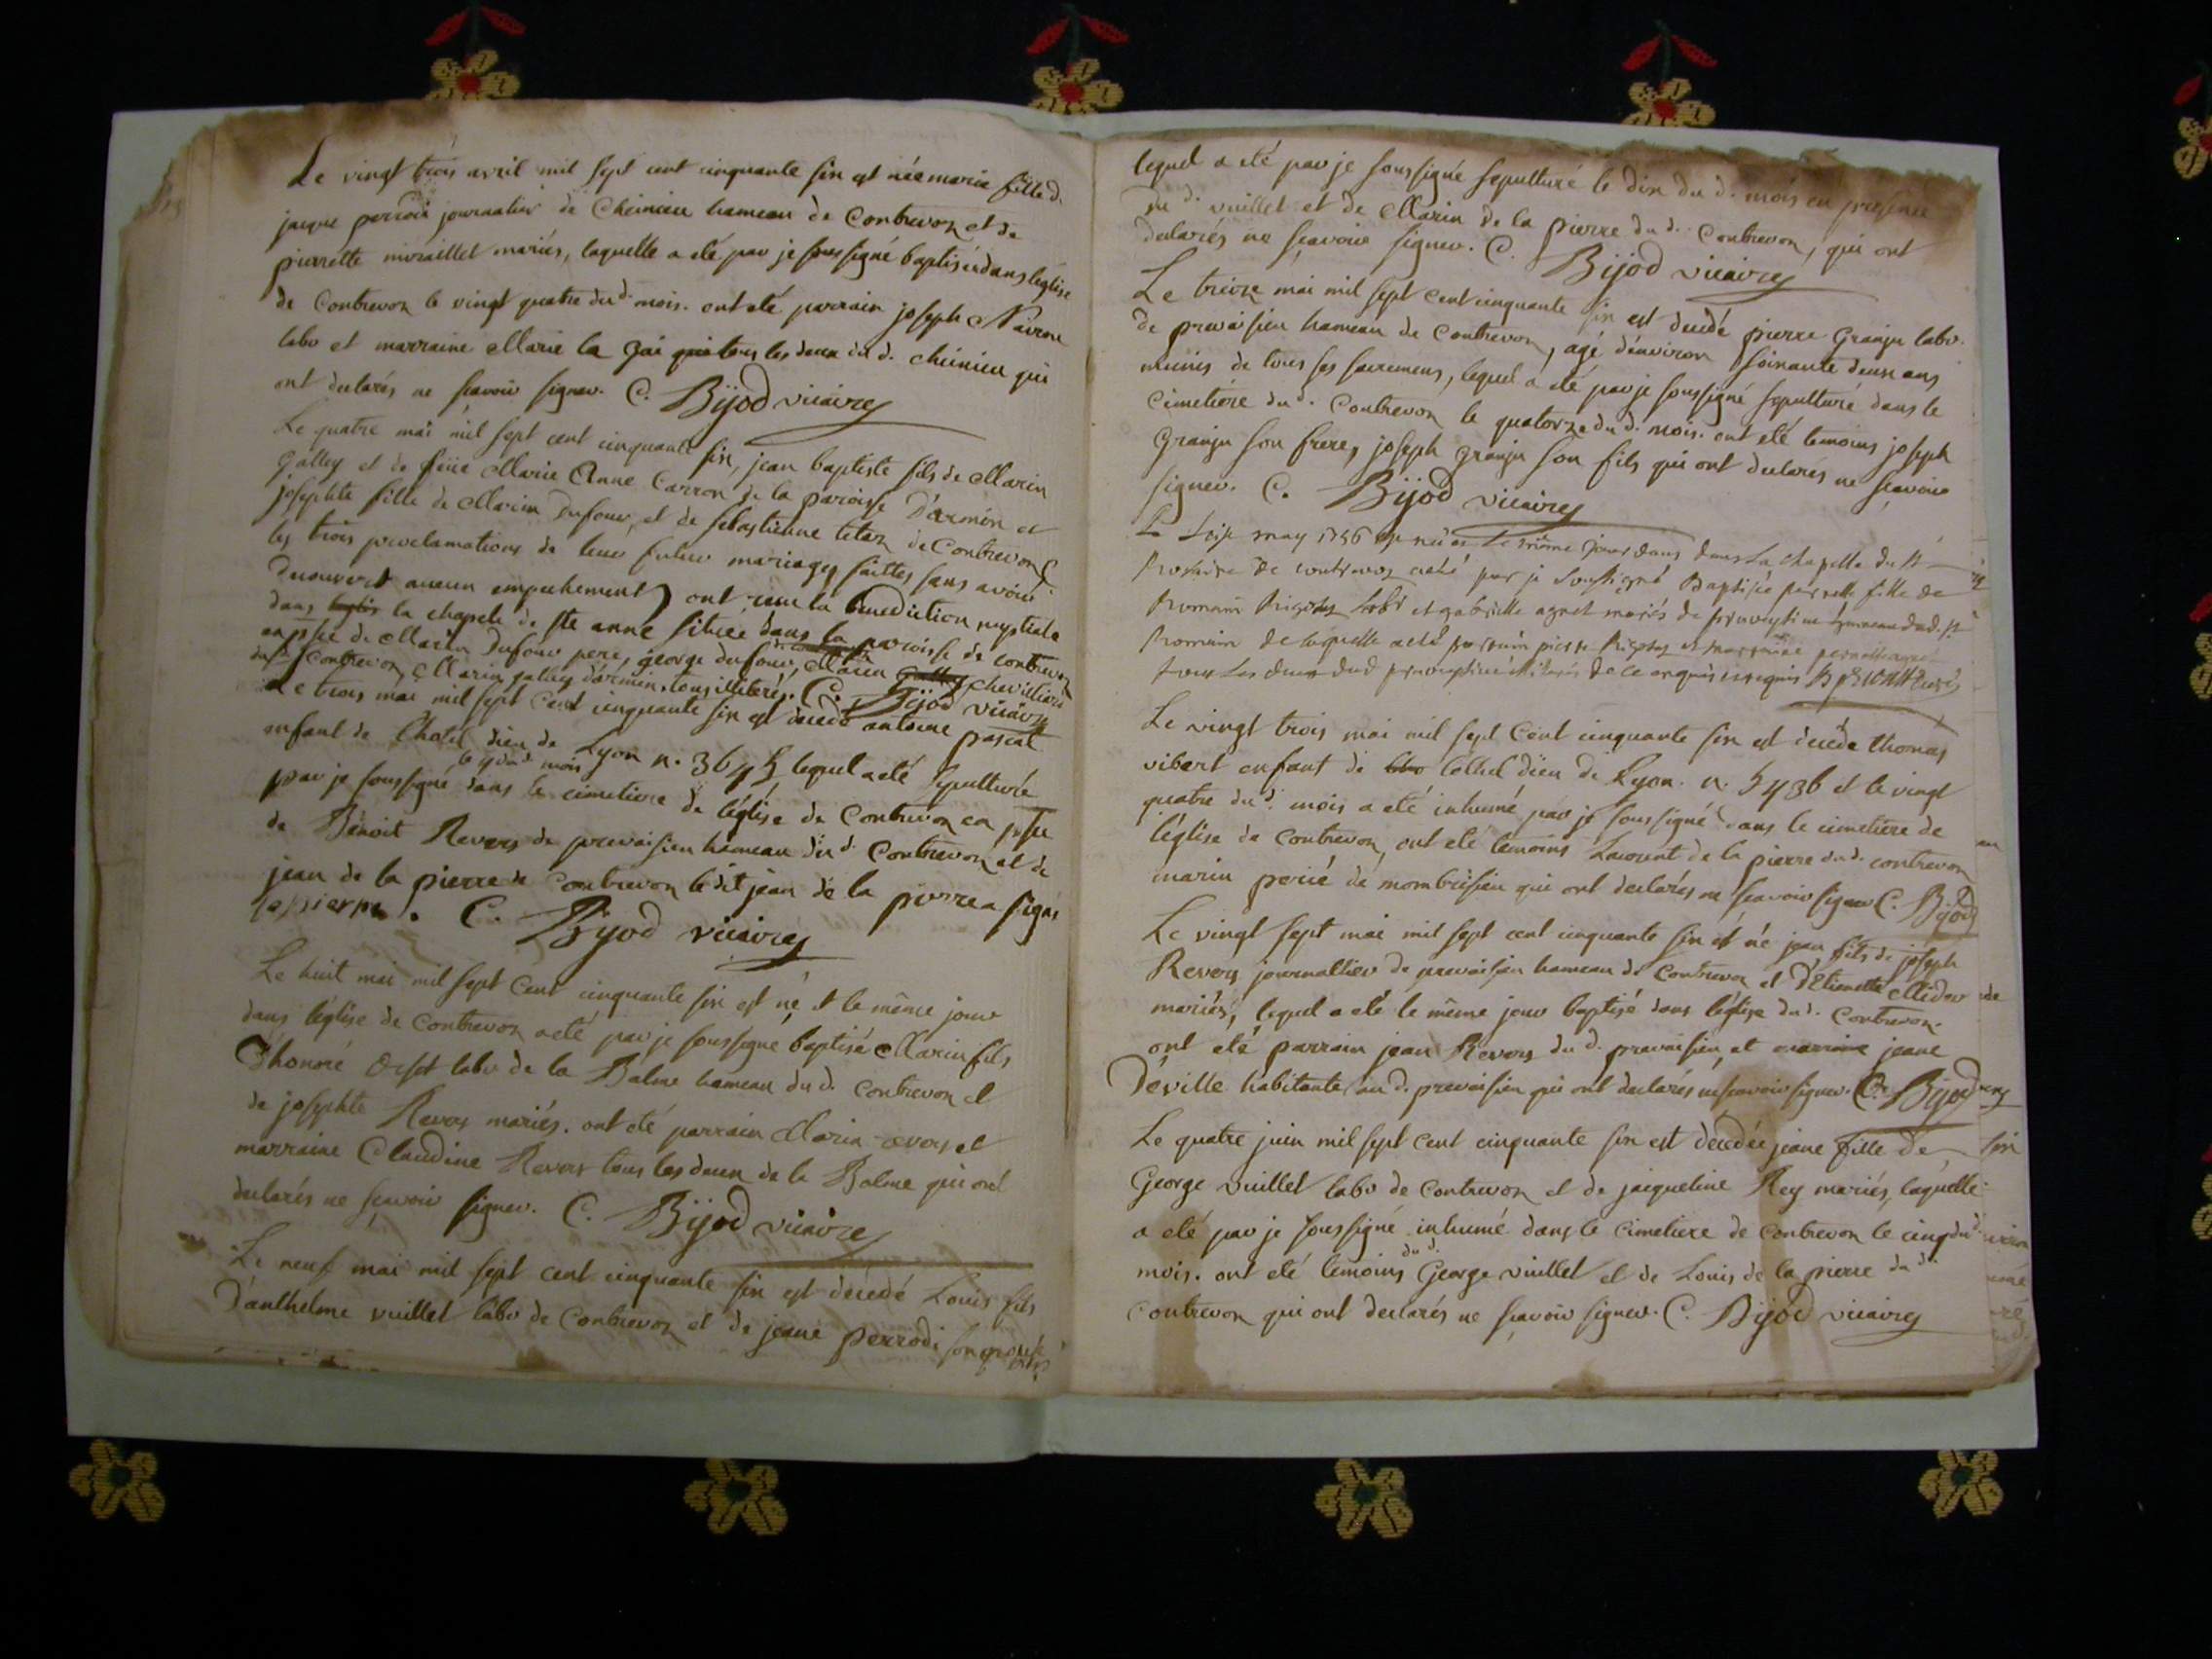 Le vingt trois avril mil sept cent cinquante six est née marie fille d.
jaque perrodi journalier de Cheinieu hameau de Contrevoz et de
pierrette miraillet mariés, laquelle a eté par je soussigné baptisée dans léglise
de Contrevoz le vingt quatre dud. mois. ont eté parrain joseph
labr et marraine Marie la gai tous les deux dud. cheinieu qui
ont declarés ne scavoir signer. C. Bijod vicaire
Le quatre mai mil sept cent cinquante six, jean baptiste fils de Marin
galley et de feüe Marie Anne Carron de la paroisse D'armin et
josephte fille de Marin Dufour, et de sebastienne tetaz de Contrevoz
les trois proclamations de leur futur mariages faittes sans avoir
decouvert aucun empechement) ont recu la benediction nuptiale
dans la chapele de ste anne située dans la paroisse de contrevoz
en pnce de Marin Dufour pere, george dufour, Marin
dud. Contrevoz, Marin galley d'armin, tous illiterés. C. Bijod vicaire
Le trois mai mil sept cent cinquante six est decedé antoine pascal
enfant de l'hotel dieu de Lyon n. lequel a eté sepulturé
le 4 dud. mois
par je soussigné dans le cimetiere de léglise de Contrevoz en pnce
de Benoit Revoy de prevaisieu hameau dud. Contrevoz et de
jean de la pierre de Contrevoz ledit jean de la pierre a signé
C. Bijod vicaire
Le huit mai mil sept cent cinquante six est né et le même jour
dans l'église de Contrevoz a eté par je soussigné baptisé Marin fils
D'honoré Orset labr de la Balme hameau dud. Contrevoz et
de josephte Revoy mariés. ont eté parrain Marin revoy et
marraine Claudine Revoy tous les deux de la Balme qui ont
declarés ne scavoir signer. C. Bijod vicaire
Le neuf mai mil sept cent cinquante six est décédé Louis fils
D'anthelme vuillet labr de Contrevoz et de jeane perrodi son epouse
lequel a eté par je soussigné sepulturé le dix du d. mois en presence
du d. vuillet et de Marin de la pierre du d. Contrevoz, qui ont
declarés ne scavoir signer. C. Bijod vicaire
Le treize mai mil sept cent cinquante six est decedé pierre Granju labr.
de prevaisieu hameau de Contrevoz, agé d'environ soixante deux ans
munis de tous ses sacremens, lequel a eté par je soussigné sepulturé dans le
cimetiére du d. Contrevoz le quatorze du d. mois. ont eté temoins joseph
Granju son frere, joseph granju son fils qui ont declarés ne scavoir
signer. C. Bijod vicaire
may 1756 est née et Le même jour dans La chapelle du st
de contrevoz aeté par je soussigné Baptisée fille de
Romain Rigolet Labr et gabrielle agnet mariés de hameau dud. st
Romain de laquelle aeté parrain pierre Rigolet et marraine
tous Les deux dud illiterés de ce enquis
Le vingt trois mai mil sept cent cinquante six est decédé thomas
vibert enfant de lôthel dieu de Lyon. n. 5436 et le vingt
quatre du d. mois a eté inhumé par je soussigné dans le cimetiere de
léglise de Contrevoz, ont eté temoins Laurent de la pierre du d. contrevoz
marin de mombrisieu qui ont declarés ne scavoir signer C. Bijod
Le vingt sept mai mil sept cent cinquante six est né jean fils de joseph
Revoy journallier de prevaisieu hameau de Contrevoz et D'Etienette Midor
mariés, lequel a eté le même jour baptisé dans l'église du d. Contrevoz.
ont eté parrain jean Revoy du d. prevaisieu et marraine jeane
Déville habitante au d. prevaisieu qui ont declarés ne scavoir signer. C. Bijod
Le quatre juin mil sept cent cinquante six est decedée jeane fille de
George vuillet labr de Contrevoz et de jaqueline Rey mariés, laquelle
a eté par je soussigné inhumé dans le cimetiere de Contrevoz le cinq du d.
mois. ont eté temoins du d. George vuillet et de Louis de la pierre du d.
Contrevoz qui ont declarés ne scavoir signer. C. Bijod vicaire